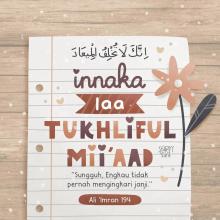 اِنَّكَ لَا تُخْلِفُ الْمِيْعَادَ
innaka
laa
TUKHLIFUL
MII'AAD
"Sungguh, Engkau tidak
pernah mengingkari janji."
Ali 'Imran 194